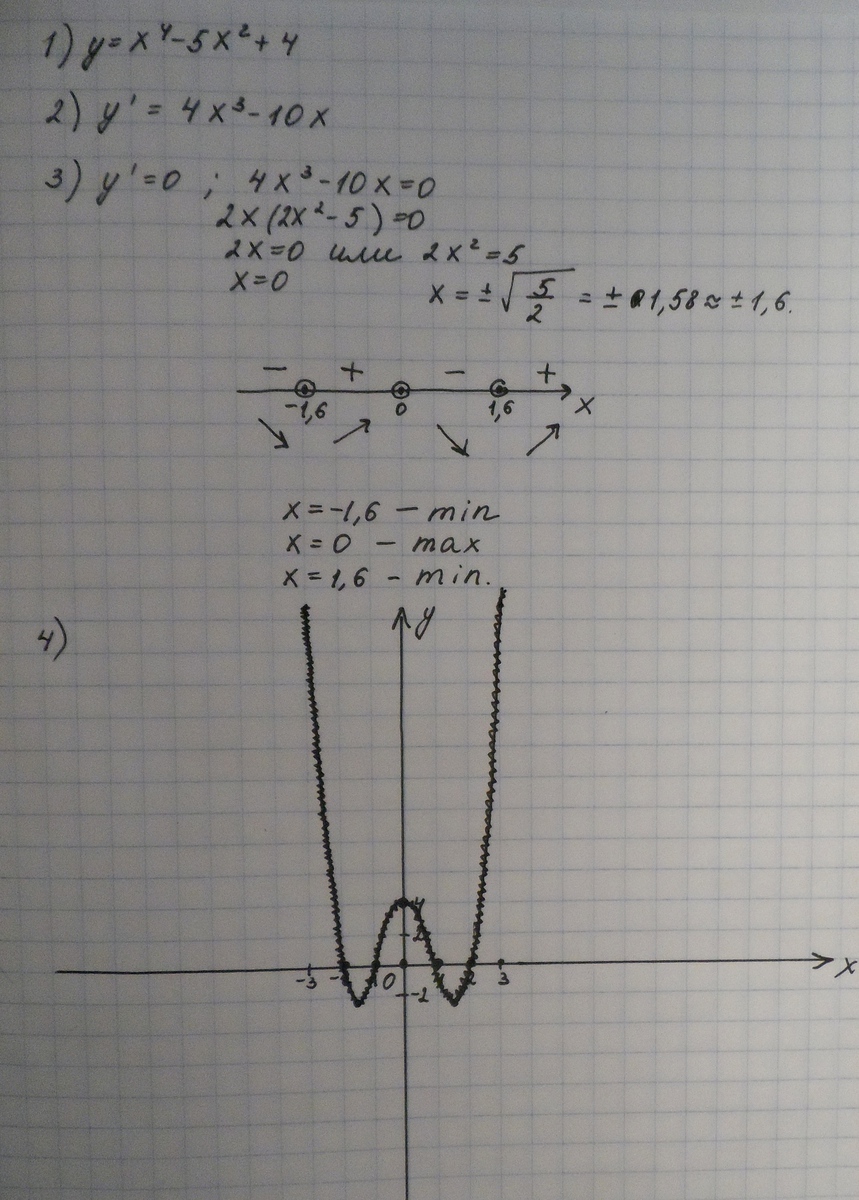 1) y = x⁴ - 5x² + 4
2) y' = 4x³ - 10x
3) y' = 0 ; 4x³ - 10x = 0
2x(2x² - 5) = 0
2x = 0 или 2x² = 5
x = 0 x = ±√(5/2) = ± 1,58 ≈ ± 1,6.
- + - +
-1,6 0 1,6 x
x = -1,6 - min
x = 0 - max
x = 1,6 - min.
4)
y
4
2
-3 0 1 2 3 x
-2